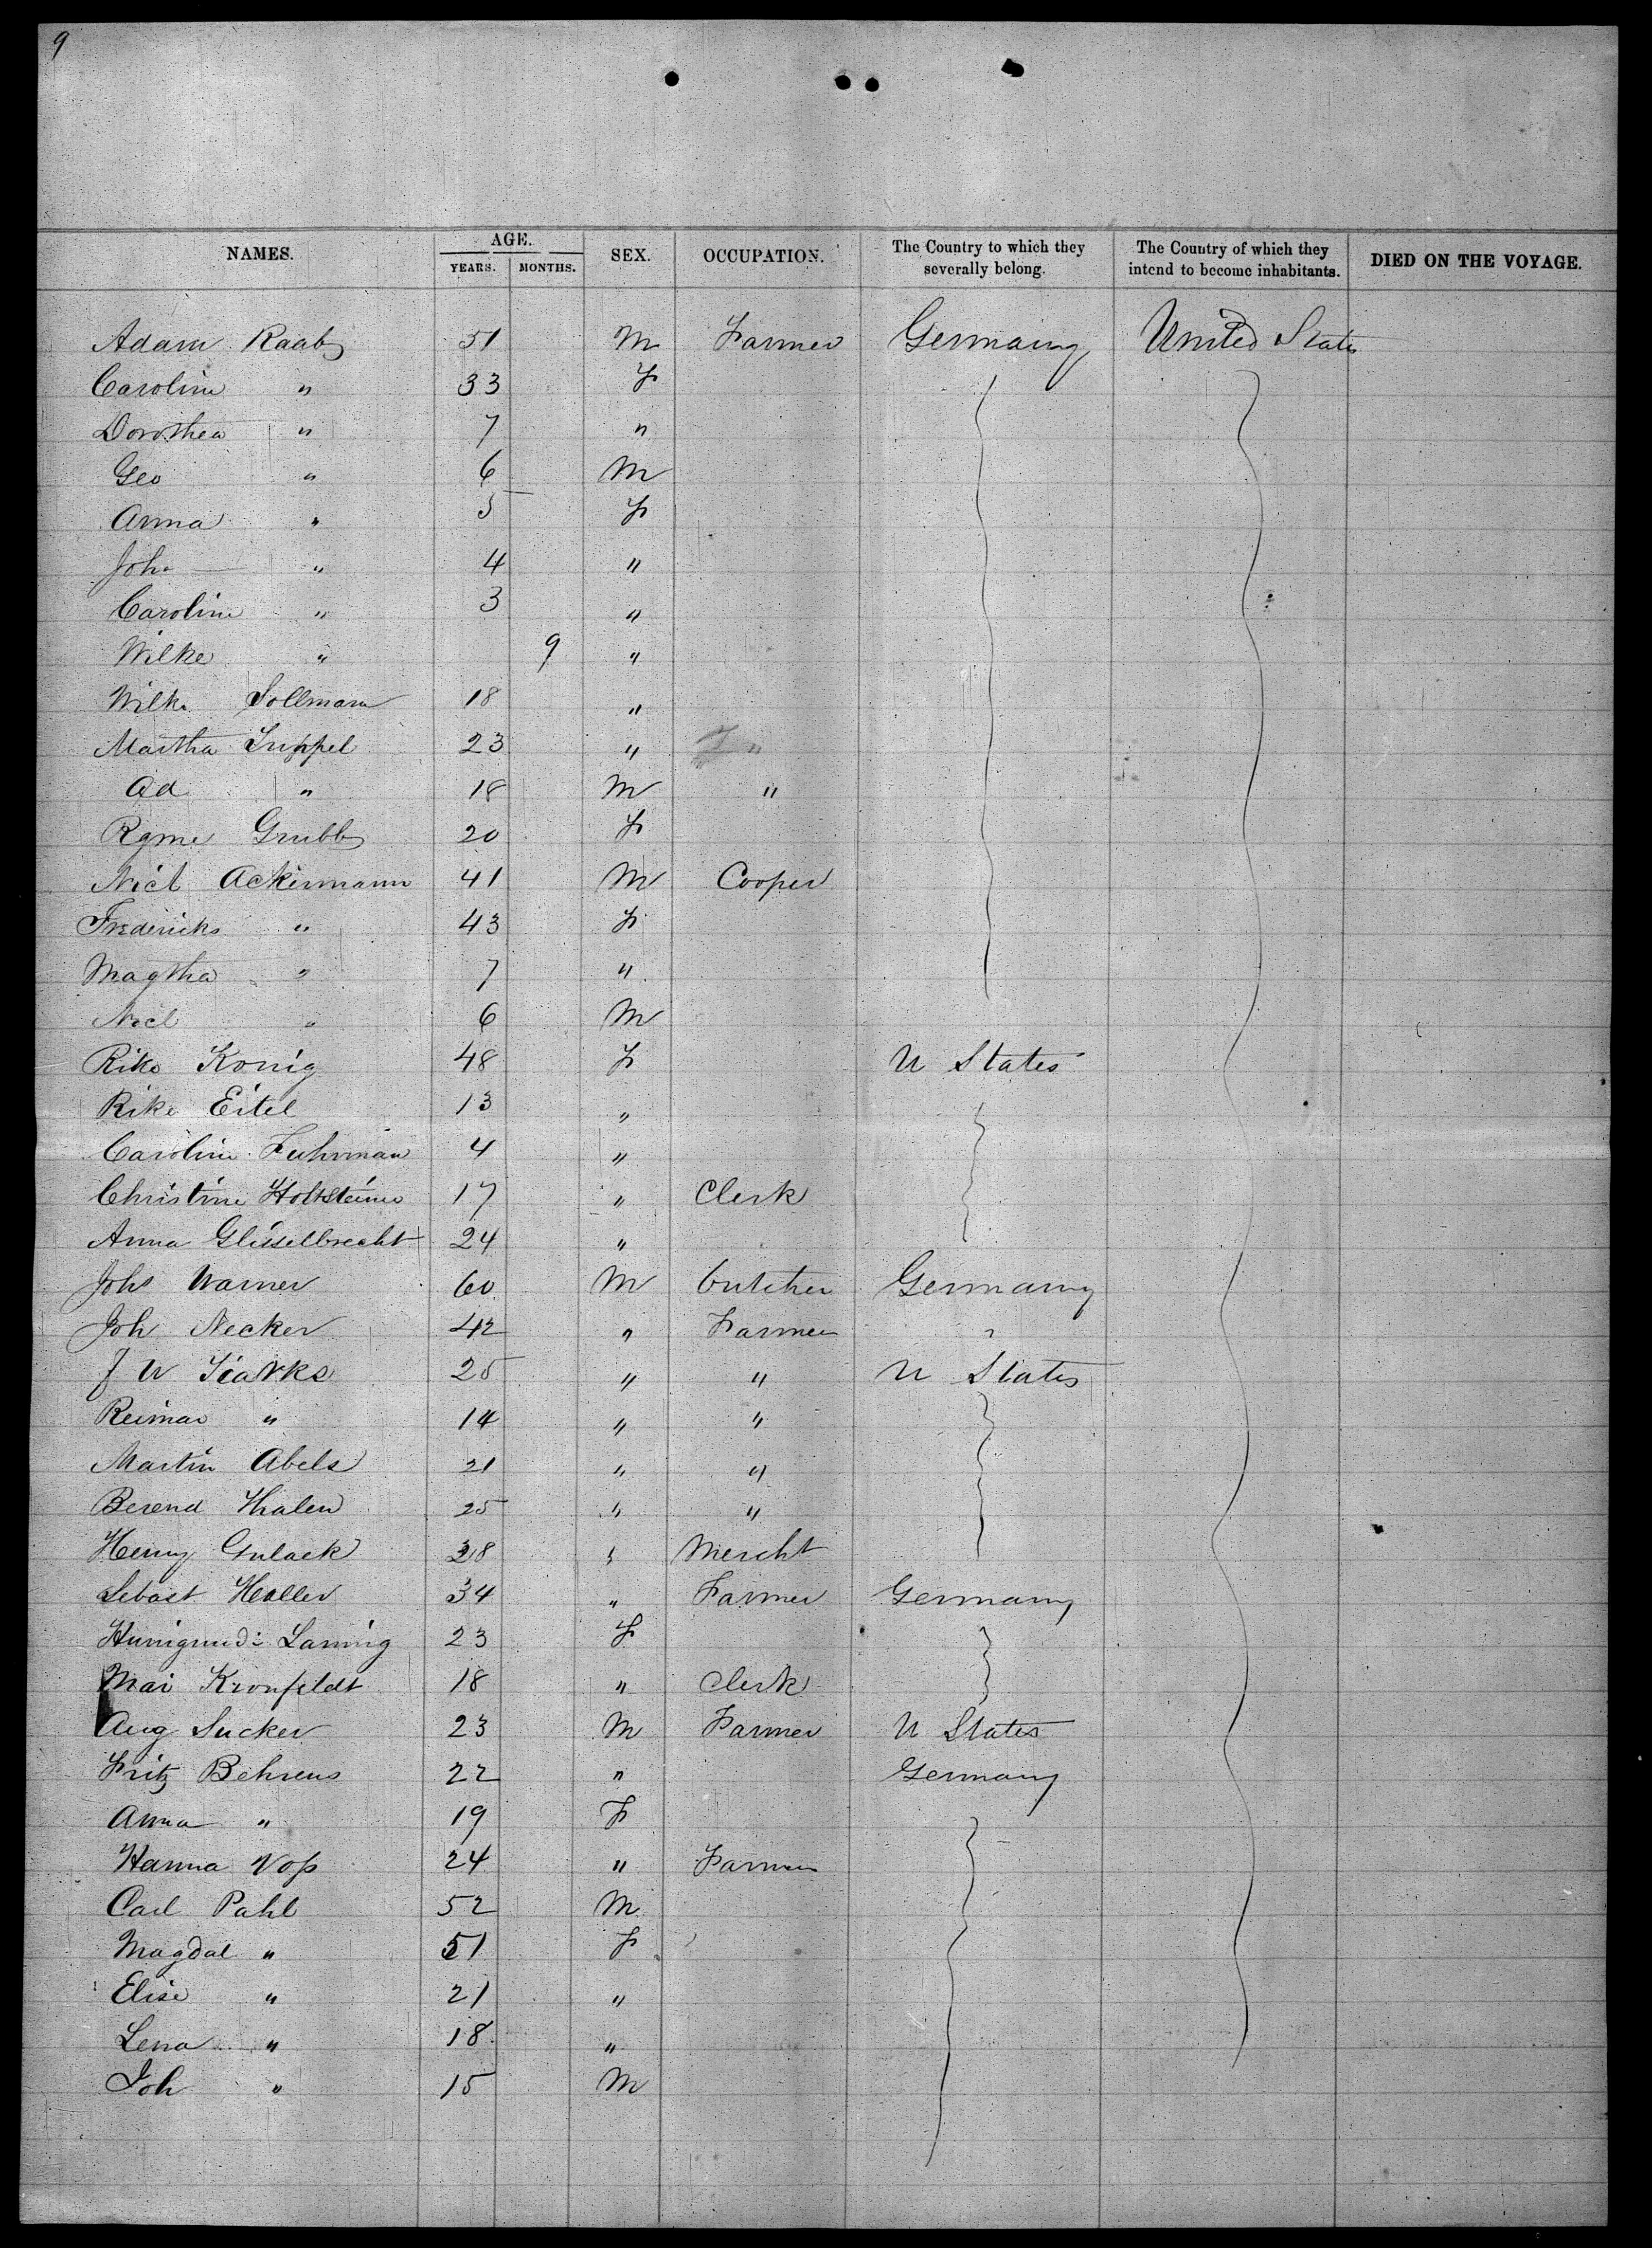 9
NAMES. AGE. YEARS. MONTHS. SEX. OCCUPATION. The Country to which they severally belong. The Country of which they intend to become inhabitants. DIED ON THE VOYAGE.
Adam Raab 51 M Farmer Germany United States
Caroline " 33 F
Dorothea " 7 "
Geo " 6 M
Anna " 5 F
Joh " 4 "
Caroline " 3 "
Wilke " 9 "
Wilke Sollmann 18 "
Martha Luppel 23 " "
Ad " 18 M "
Grubb 20 F
Nicl Ackermann 41 M Cooper
Fredericks " 43 F
Magtha " 7 "
Nicl " 6 M
Rike Konig 48 F U States
Rike Eitel 13 "
Caroline Fuhrman 4 "
Christine Holtsteiner 17 " Clerk
Anna Glisselbrecht 24 "
Joh Warner 60 M butcher Germany
Joh Necker 42 " Farmer "
J W Tiarks 25 " " U States
Reimar " 14 " "
Martin Abels 21 " "
Berend Thalen 25 " "
Henry Gulack 28 " Mercht
Sebast Haller 34 " Farmer Germany
Laming 23 F
Mai Kronfeldt 18 " Clerk
Aug Sucker 23 M Farmer U States
Fritz Behrens 22 " Germany
Anna " 19 F
Hanna Voß 24 " Farmer
Carl Pahl 52 M
Magdal " 51 F
Elise " 21 "
Lena " 18 "
Joh " 15 M